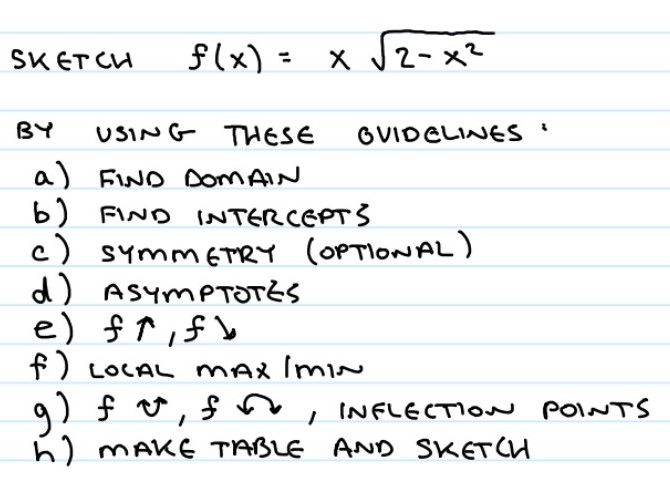 SKETCH f(x) = x √2-x²
BY USING THESE GUIDELINES:
a) FIND DOMAIN
b) FIND INTERCEPTS
c) SYMMETRY (OPTIONAL)
d) ASYMPTOTES
e) f↑, f↘
f) LOCAL MAX/MIN
g) f , f , INFLECTION POINTS
h) MAKE TABLE AND SKETCH